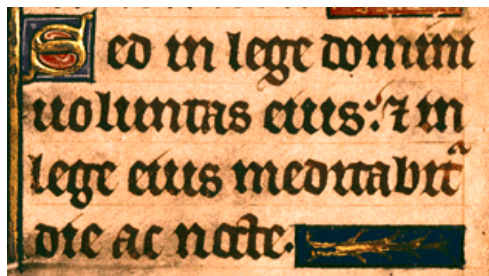 Sed in lege domini
uoluntas eius: ⁊ in
lege eius meditabit᷑
die ac nocte.